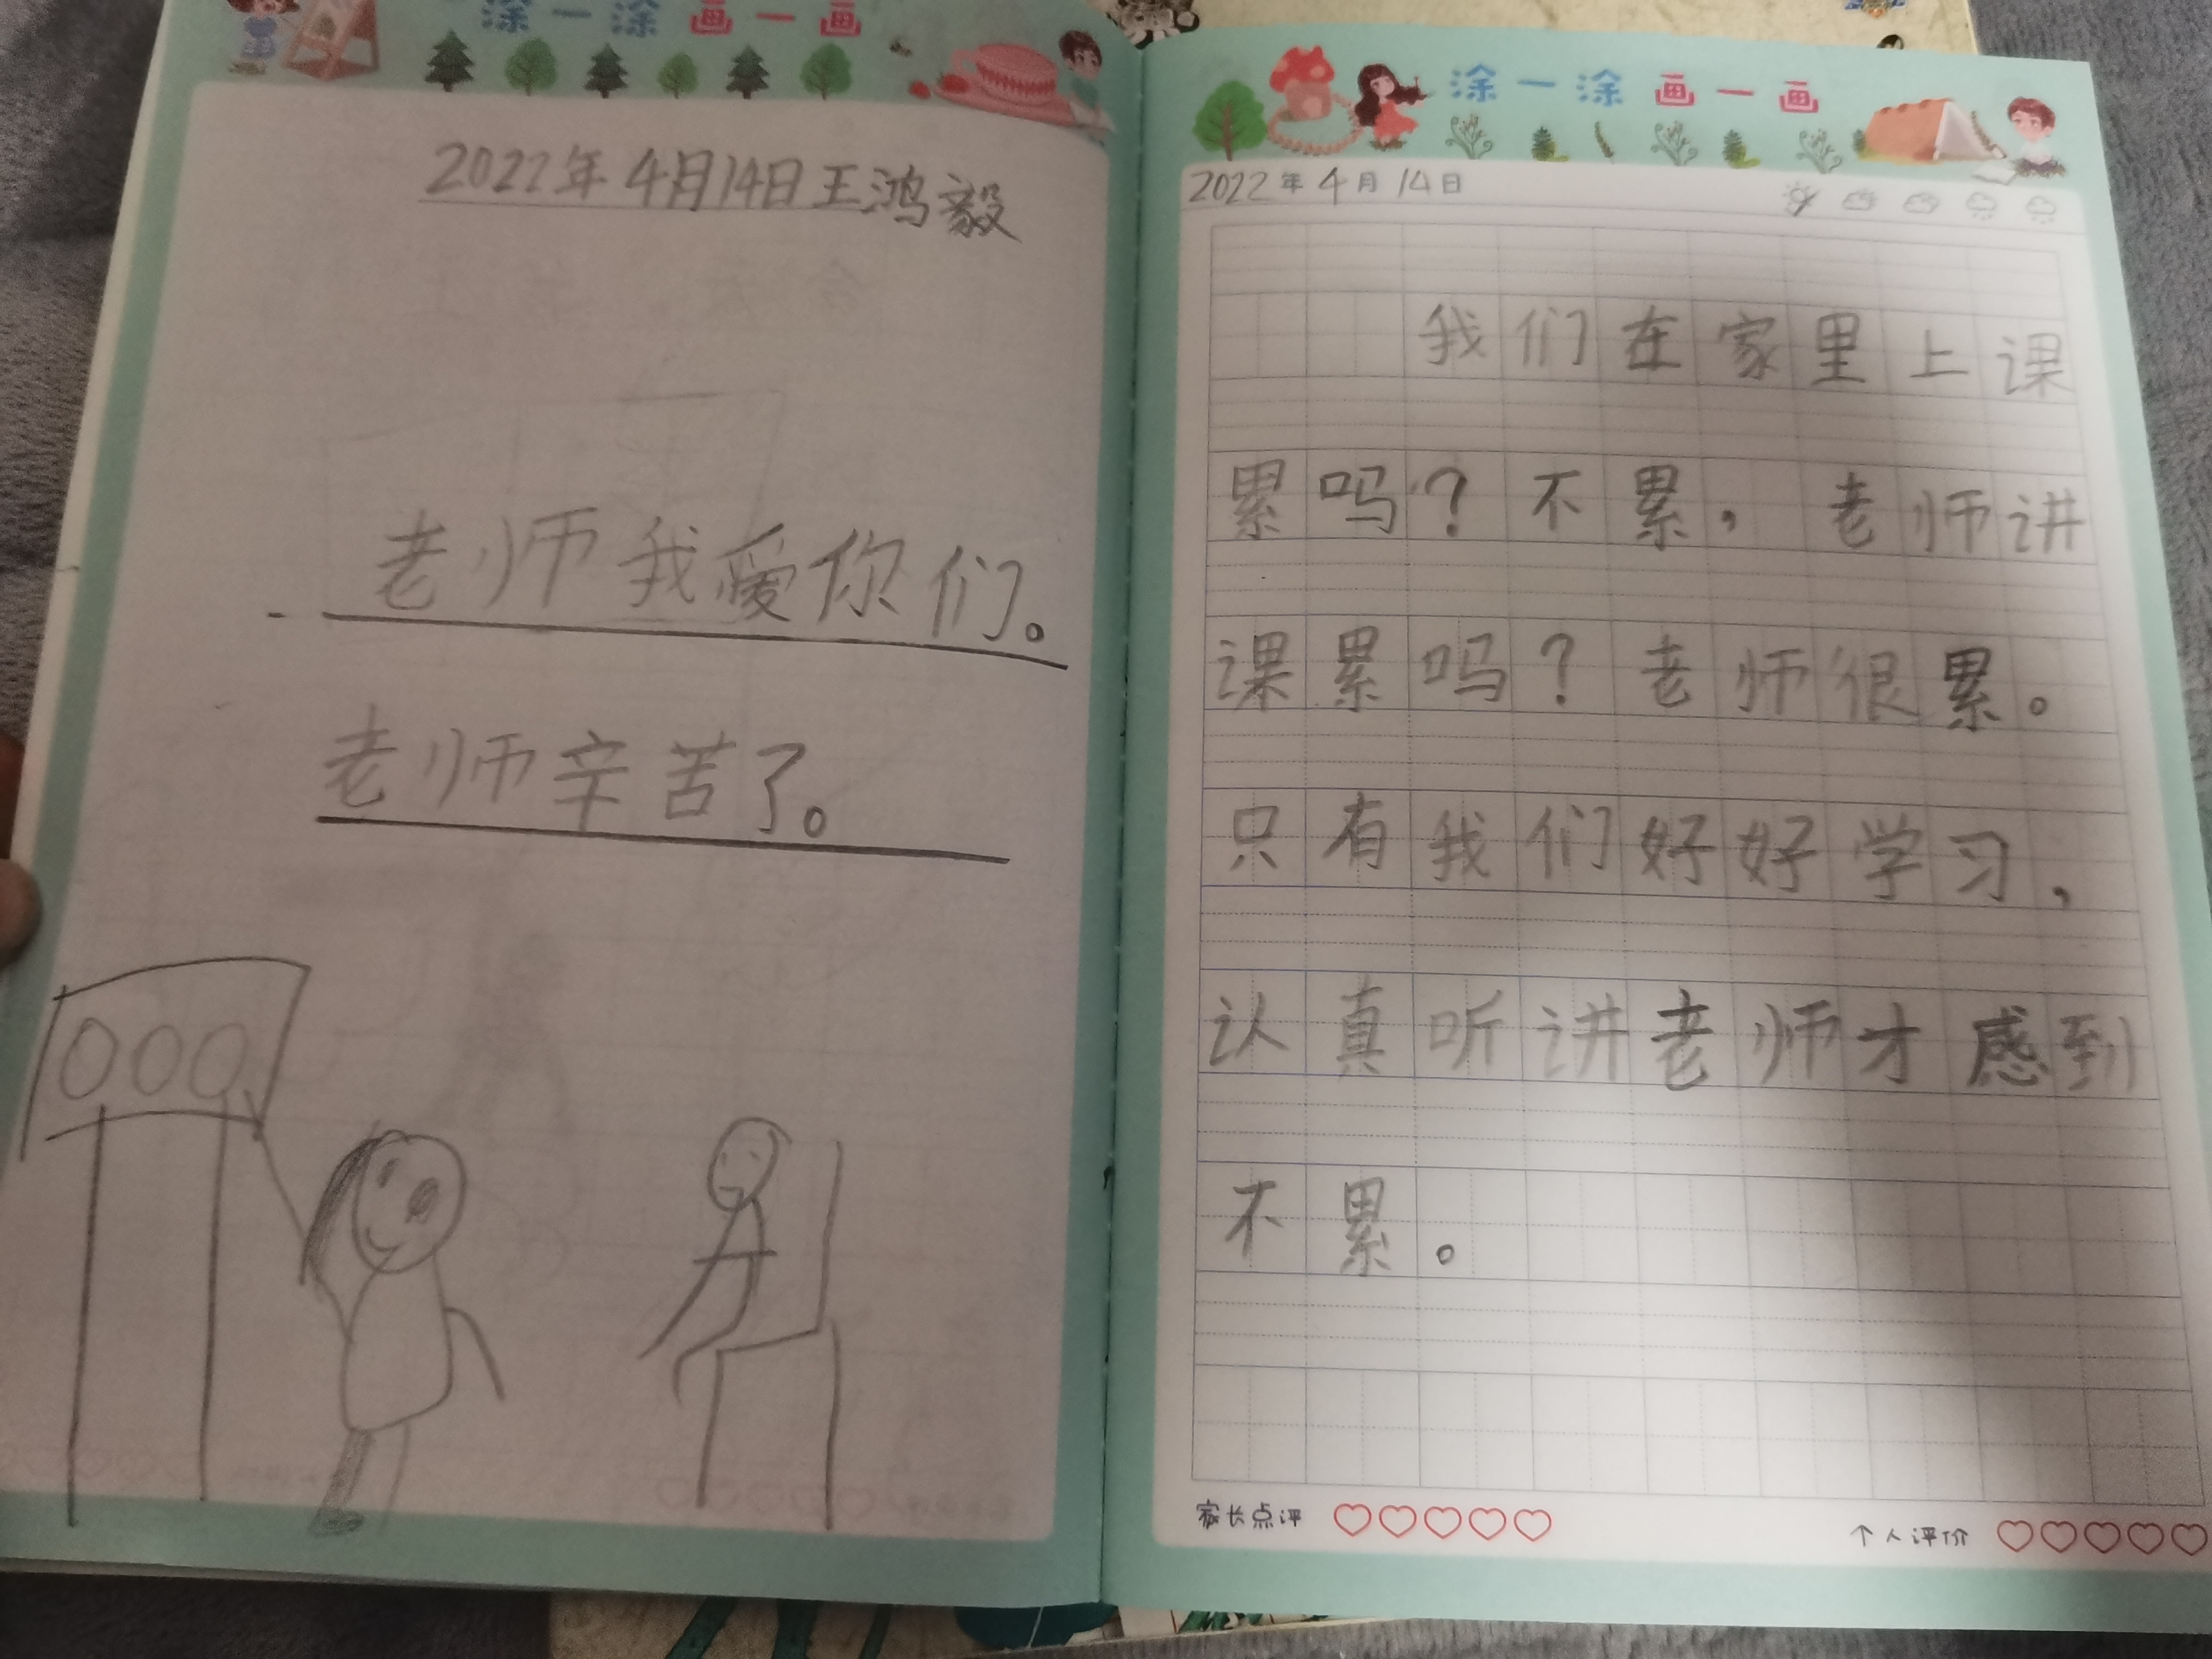 涂一涂画一画
2022年4月14日王鸿毅
老师我爱你们。
老师辛苦了。
涂一涂画一画
2022年4月14日
我们在家里上课
累吗?不累,老师讲
课累吗?老师很累。
只有我们好好学习,
认真听讲老师才感到
不累。
家长点评
个人评价